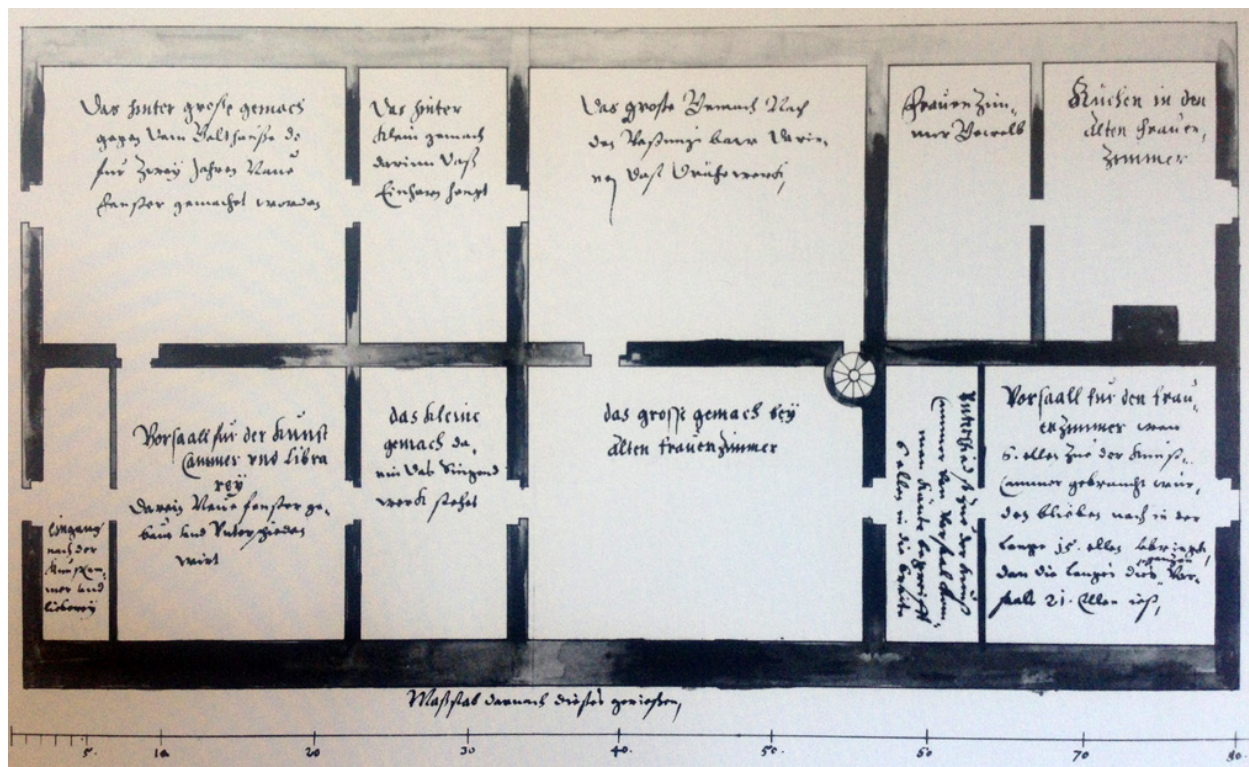 Das hinter grosse gemach
gegen dem Balhausse do
fur Zwey Jahren Neue
fenster gemacht worden
Das hinter
klein gemach
darinn das
Einhorn hengt
Das grosse Gemach Nach
der Vestunge
das
Frauen Zim-
mer
Küchen in den
alten Frauen,
Zimmer
Vorsaall für der Kunst
Cammer und Libra
rey
Darein Neue fenster ge-
baut und Unterschieden
wirt
Eingang
nach der
Kunstkam-
mer und
liberey
das kleine
gemach da,
rin das Singend
werck stehet
das grosse gemach bey
alten frauenzimmer
Unterschied so zue der Kunst
Cammer von Vorsaal
man
6 ellen in die breite
Vorsaall für den Frau-
enzimmer wan
6. ellen Zue der Kunst-
Cammer gebraucht wür,
den blieben noch in der
lenge 15. ellen
dan die lenge dies Vor-
saals 21. Ellen ist,
Maßstab darnach dieses gerissen,
5.
10
20
30
40
50.
60
70
80.